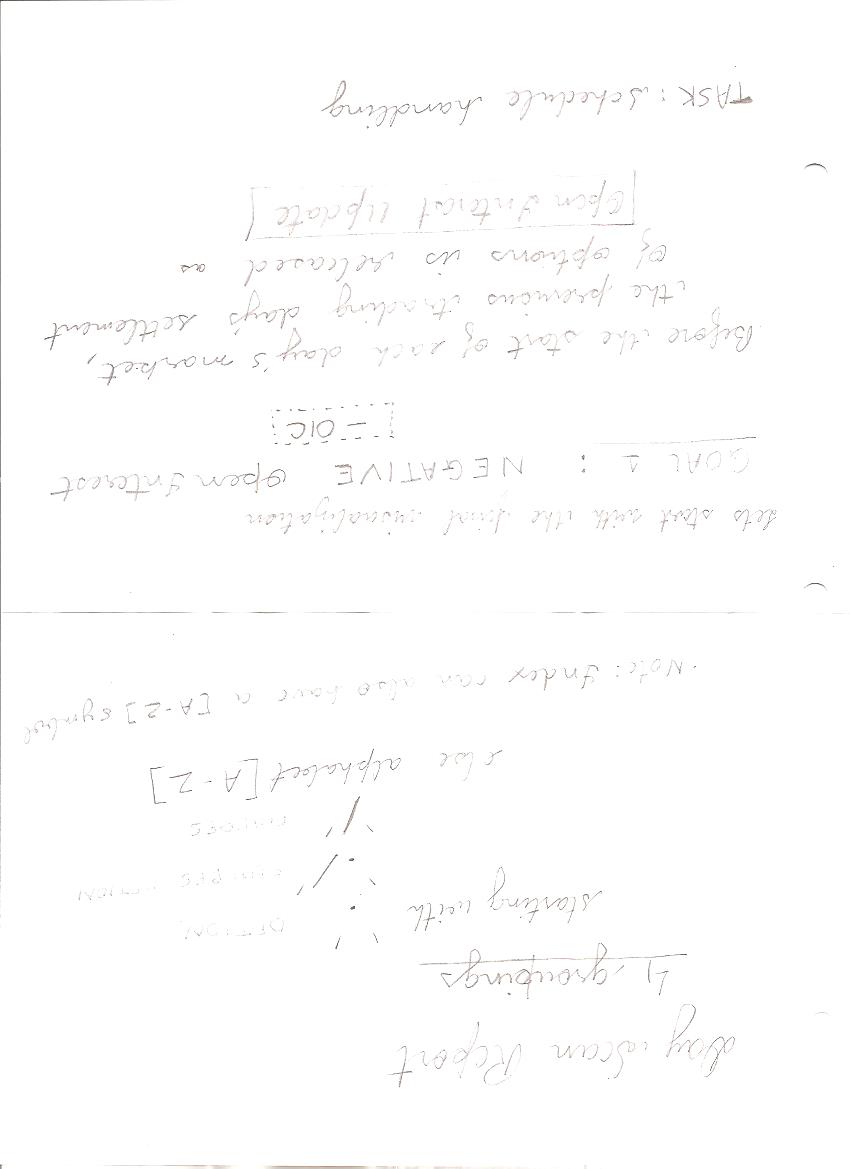 Day Scan Report
4 groupings
starting with '.' OPTION
'./' FUTURES OPTION
'/' FUTURES
else alphabet [A-Z]
Note: Index can also have a [A-Z] symbol
Lets start with the final visualization
GOAL 1 : NEGATIVE Open Interest
- OIC
Before the start of each day's market,
the previous trading day's settlement
of options is released as
Open Interest Update
TASK: Schedule handling